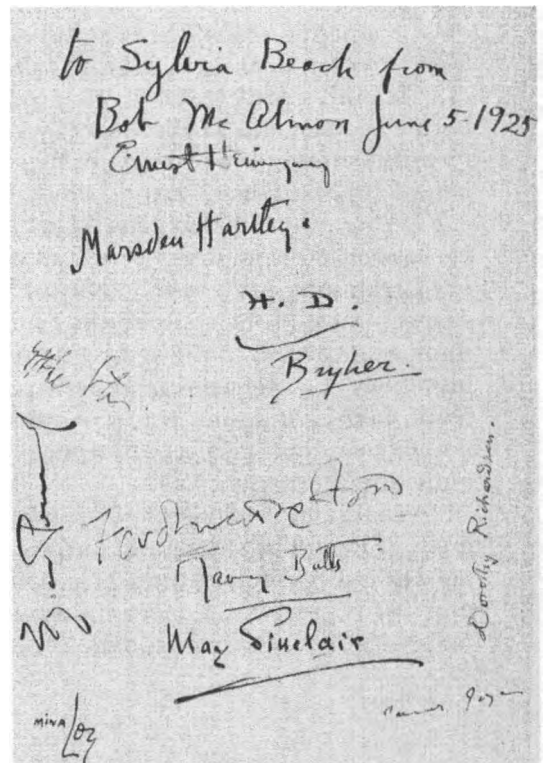 to Sylvia Beach from
Bob McAlmon June 5-1925
Ernest Hemingway
Marsden Hartley.
H. D.
Bryher.
Ford Madox Ford
Mary Butts
May Sinclair
Dorothy Richardson.
MINA Loy
James Joyce